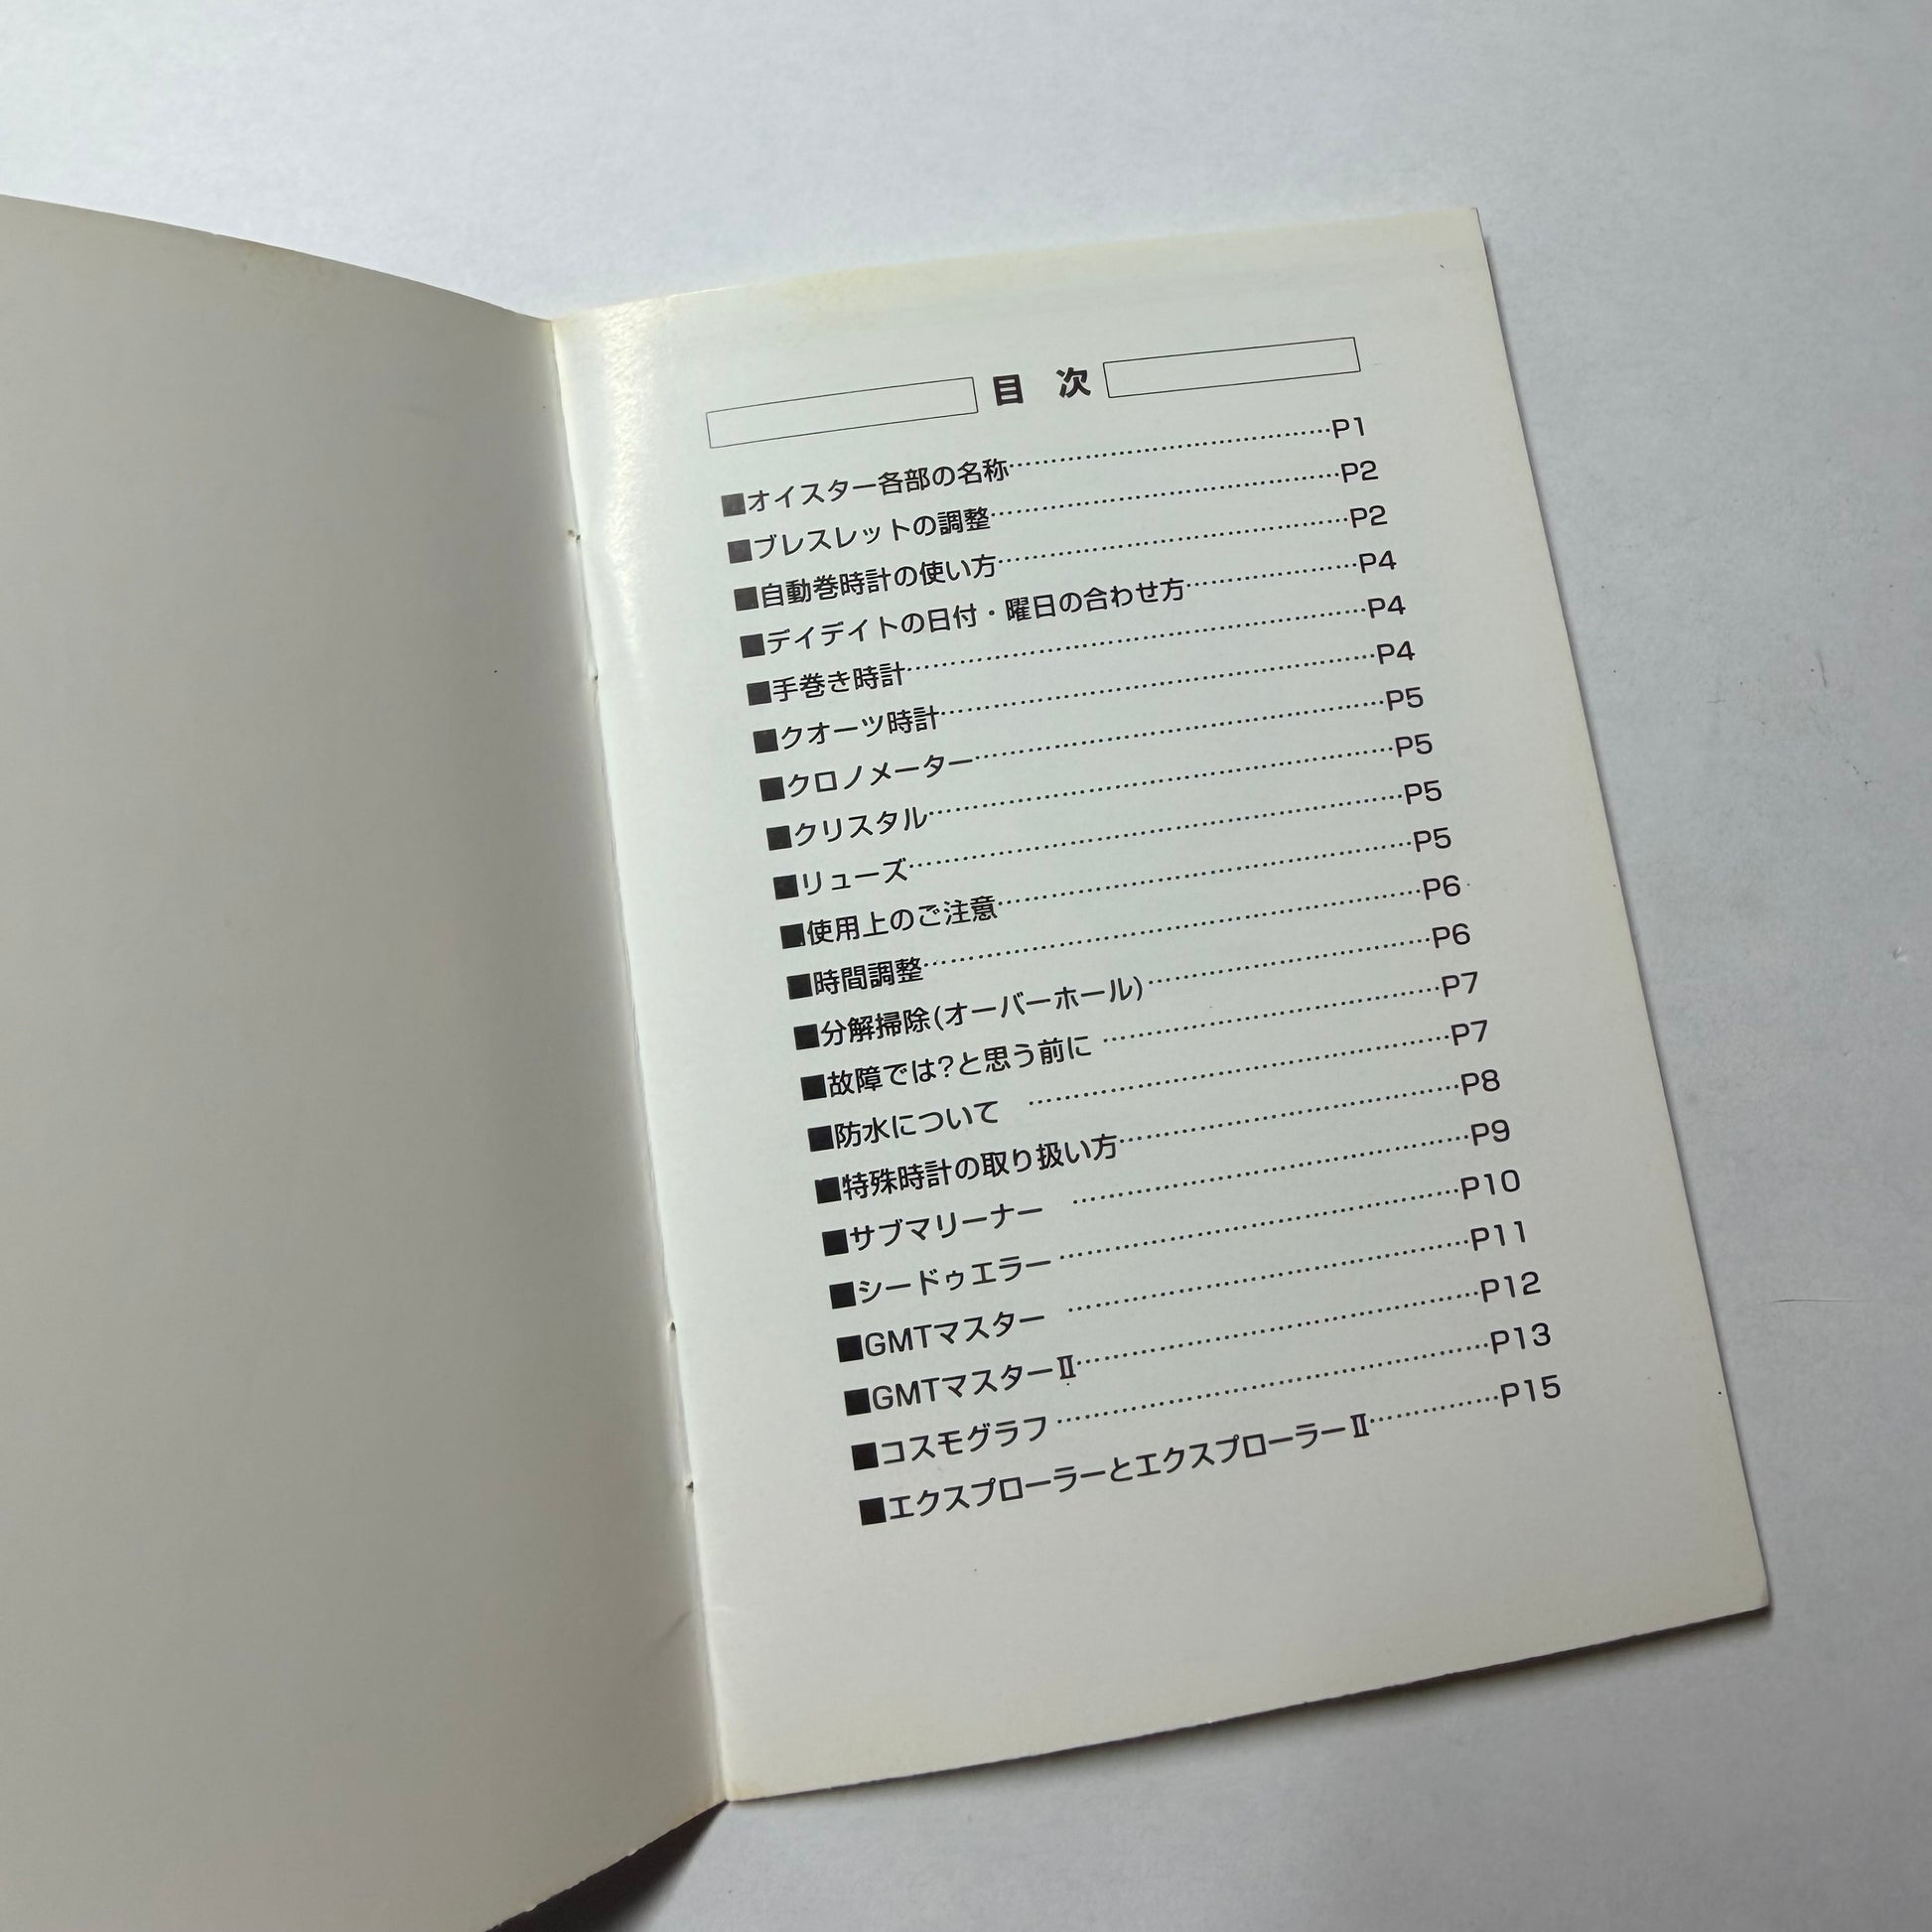 目 次
■オイスター各部の名称……………………………P1
■ブレスレットの調整……………………………P2
■自動巻時計の使い方……………………………P2
■デイデイトの日付・曜日の合わせ方………………P4
■手巻き時計……………………………………P4
■クオーツ時計…………………………………P4
■クロノメーター………………………………P5
■クリスタル……………………………………P5
■リューズ………………………………………P5
■使用上のご注意………………………………P5
■時間調整………………………………………P6
■分解掃除(オーバーホール)……………………P6
■故障では?と思う前に …………………………P7
■防水について …………………………………P7
■特殊時計の取り扱い方…………………………P8
■サブマリーナー ………………………………P9
■シードゥエラー ………………………………P10
■GMTマスター ………………………………P11
■GMTマスターⅡ………………………………P12
■コスモグラフ …………………………………P13
■エクスプローラーとエクスプローラーⅡ…………P15